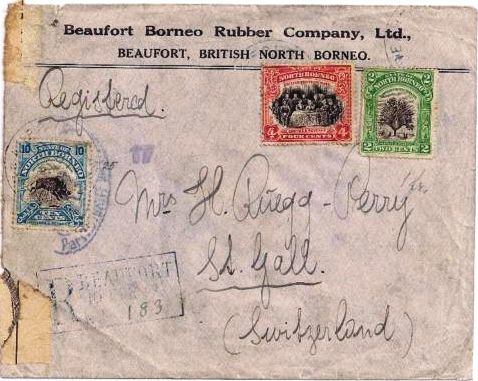 Beaufort Borneo Rubber Company, Ltd.,
BEAUFORT, BRITISH NORTH BORNEO.
Registered.
NORTH BORNEO
4 4
FOUR CENTS
2 2
2 2
TWO CENTS
STATE OF
10 10
NORTH BORNEO
TEN
CENTS
17
Mrs H. Rüegg-Perry
St. Gall.
(Switzerland)
R BEAUFORT
183